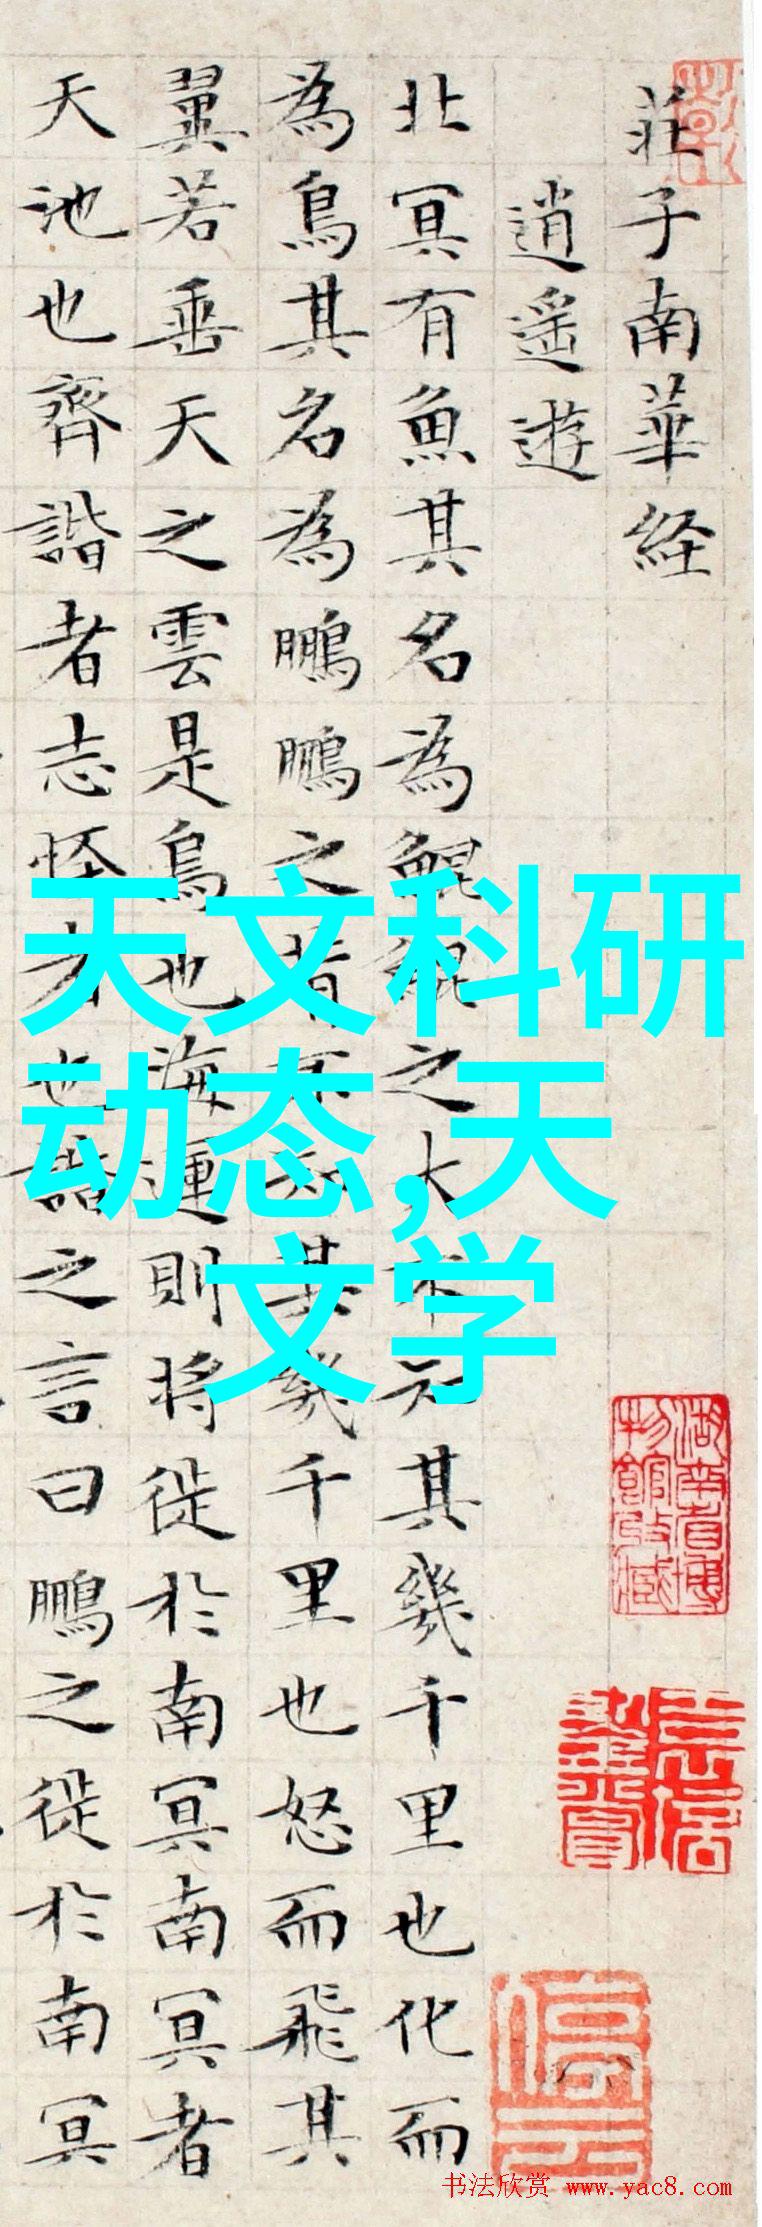 莊子南華経
逍遙遊
北冥有魚其名為鯤鯤之大不知其幾千里也化而
為鳥其名為鵬鵬之背不知其幾千里也怒而飛其
翼若垂天之雲是鳥也海運則將徙於南冥南冥者
天池也齊諧者志怪者也諧之言曰鵬之徙於南冥
天文科研
动态,天
文学
湖南省博
物館收藏
书法欣赏 www.yac8.com